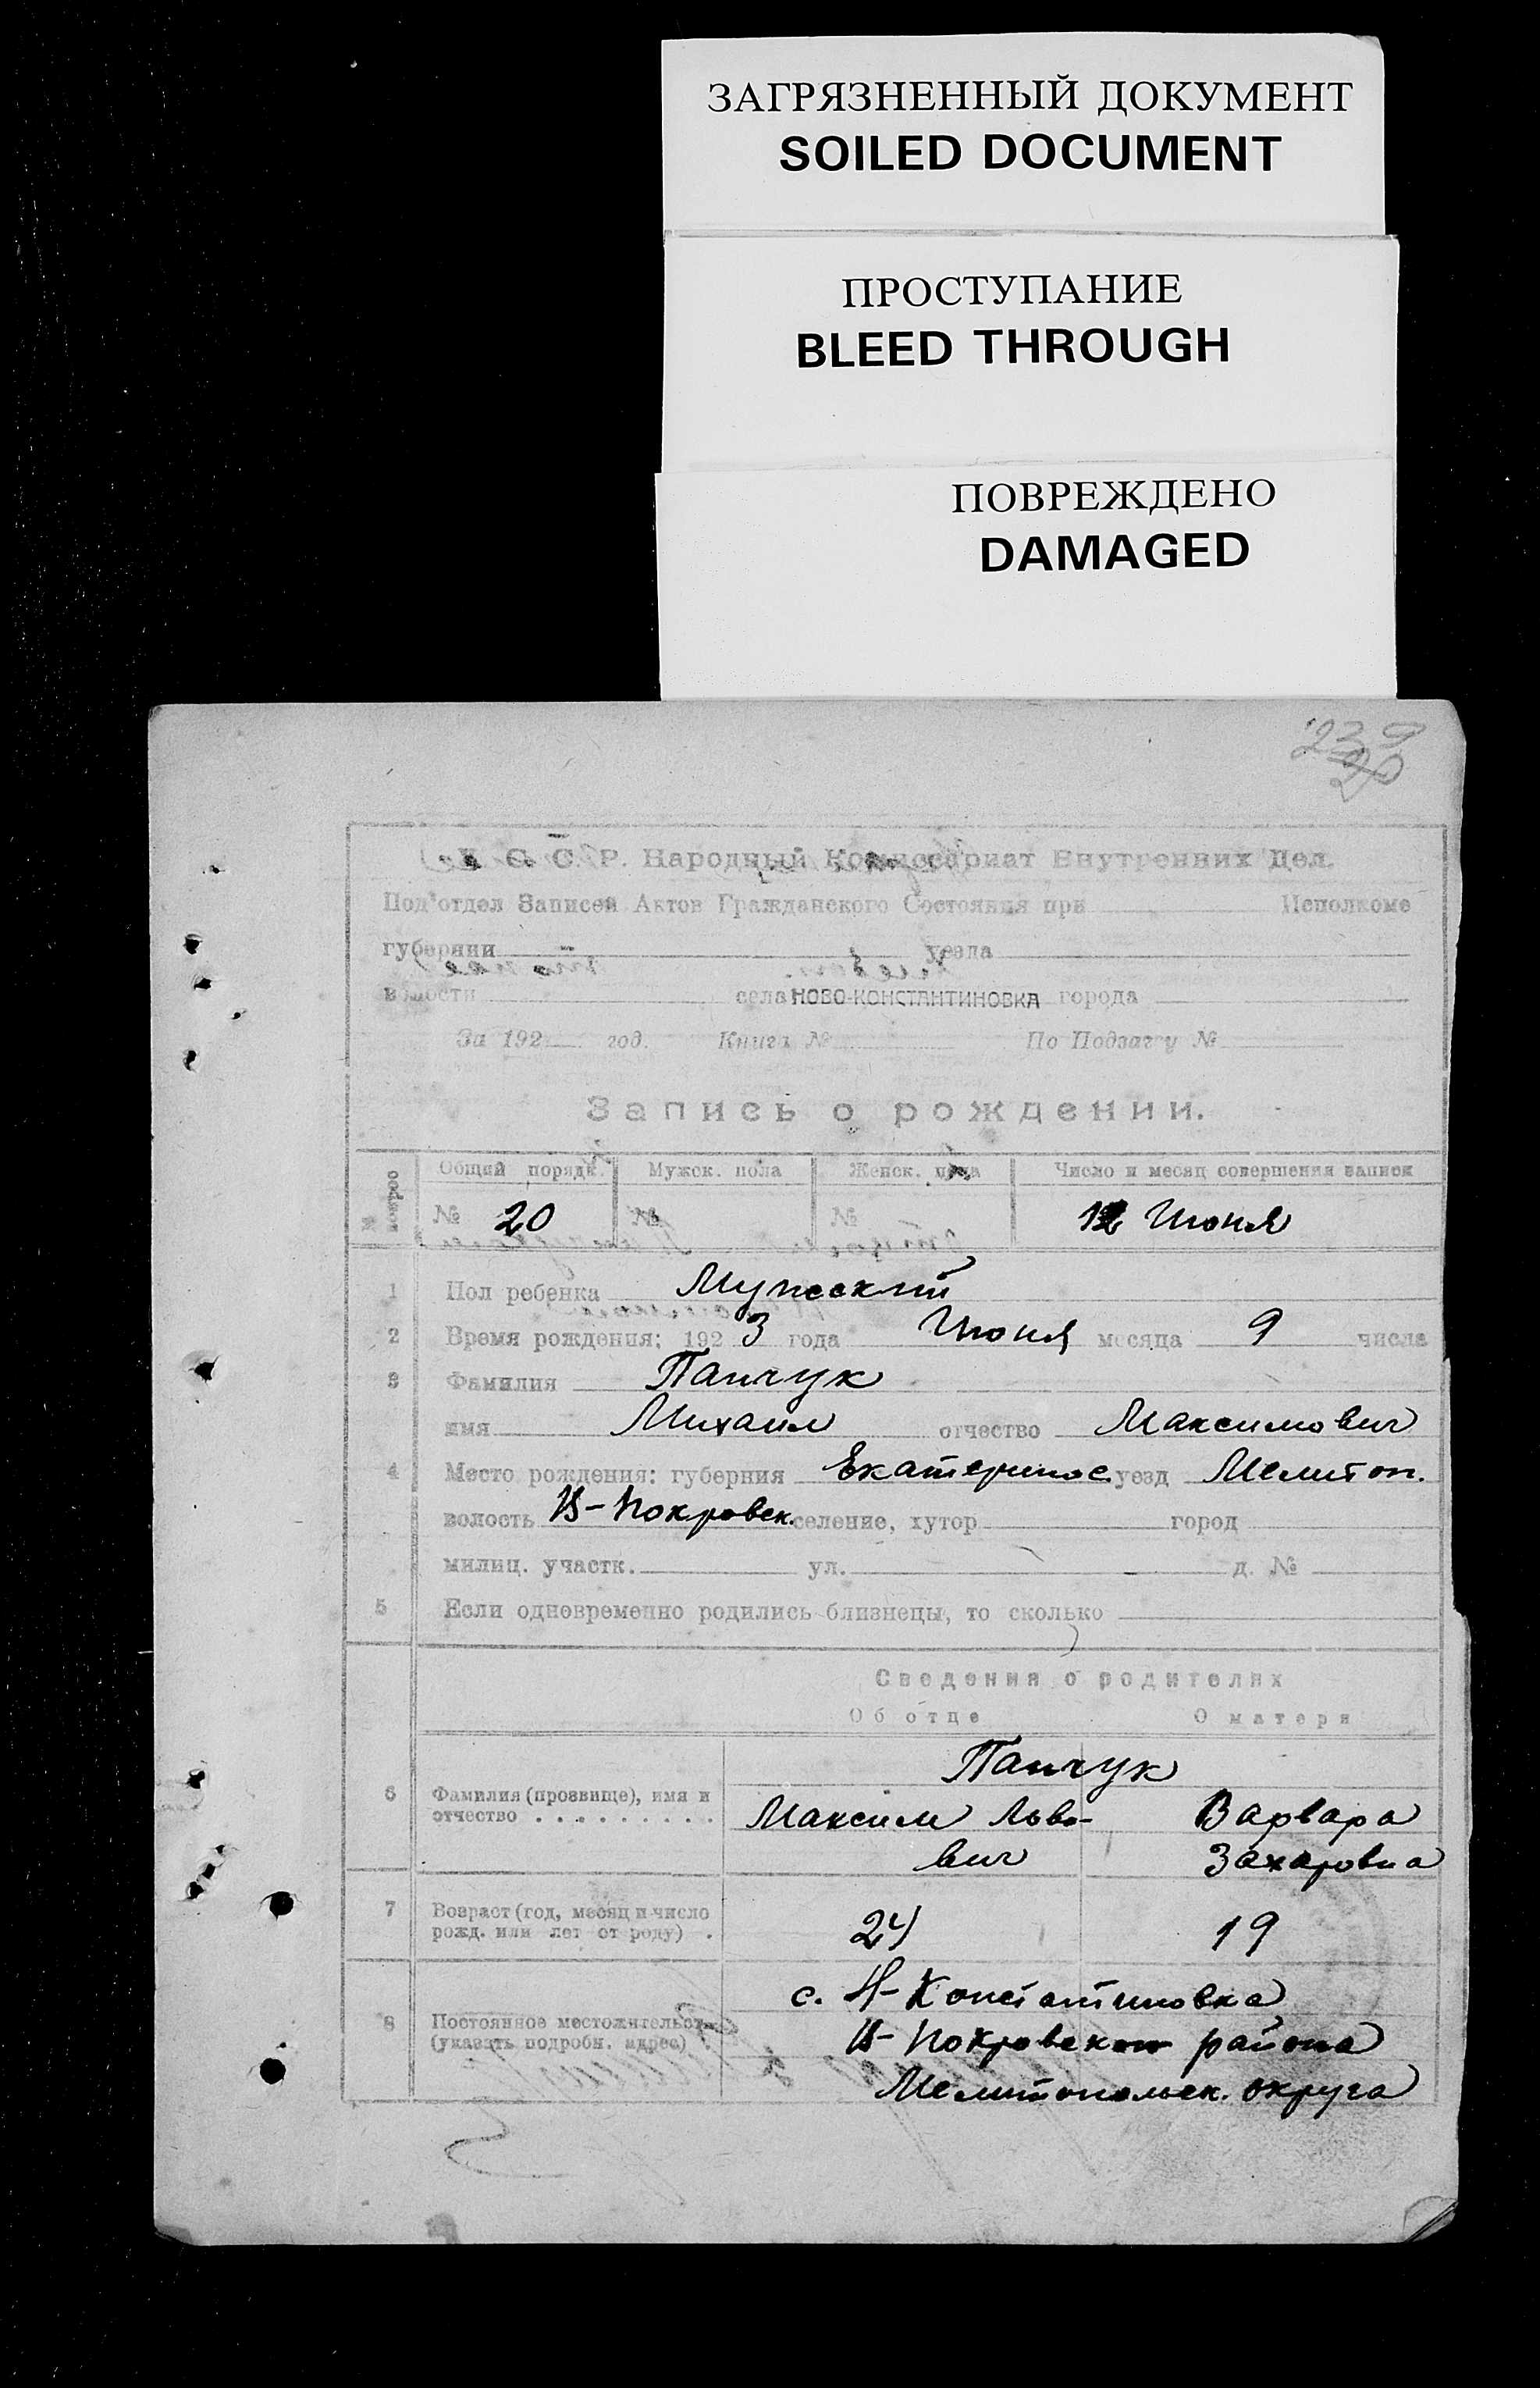 ЗАГРЯЗНЕННЫЙ ДОКУМЕНТ
SOILED DOCUMENT
ПРОСТУПАНИЕ
BLEED THROUGH
ПОВРЕЖДЕНО
DAMAGED
239
20
У. С. С. Р. Народный Комиссариат Внутренних Дел.
Под'отдел Записей Актов Гражданского Состояния при Исполкоме
губернии уезда
волости села НОВО-КОНСТАНТИНОВКА города
За 192 год. Книга № По Подзагсу №
Запись о рождении.
№ вопрос Общий порядк. Мужск. пола Женск. пола Число и месяц совершения записи
№ 20 № № 12 Июня
1 Пол ребенка Мужский
2 Время рождения: 192 3 года Июня месяца 9 числа
3 Фамилия Папчук
имя Михаил отчество Максимович
4 Место рождения: губерния Екатеринос. уезд Мелитоп.
волость В-Покровск. селение, хутор город
милиц. участк. ул. д. №
5 Если одновременно родились близнецы, то сколько
Сведения о родителях
Об отце О матери
Папчук
6 Фамилия (прозвище), имя и
отчество . . . . . . . . . . Максим Льво- Варвара
вич Захаровна
7 Возраст (год, месяц и число
рожд. или лет от роду) . 24 19
с. Н-Константиновка
8 Постоянное местожительст.
(указать подробн. адрес) В-Покровского района
Мелитопольск. округа